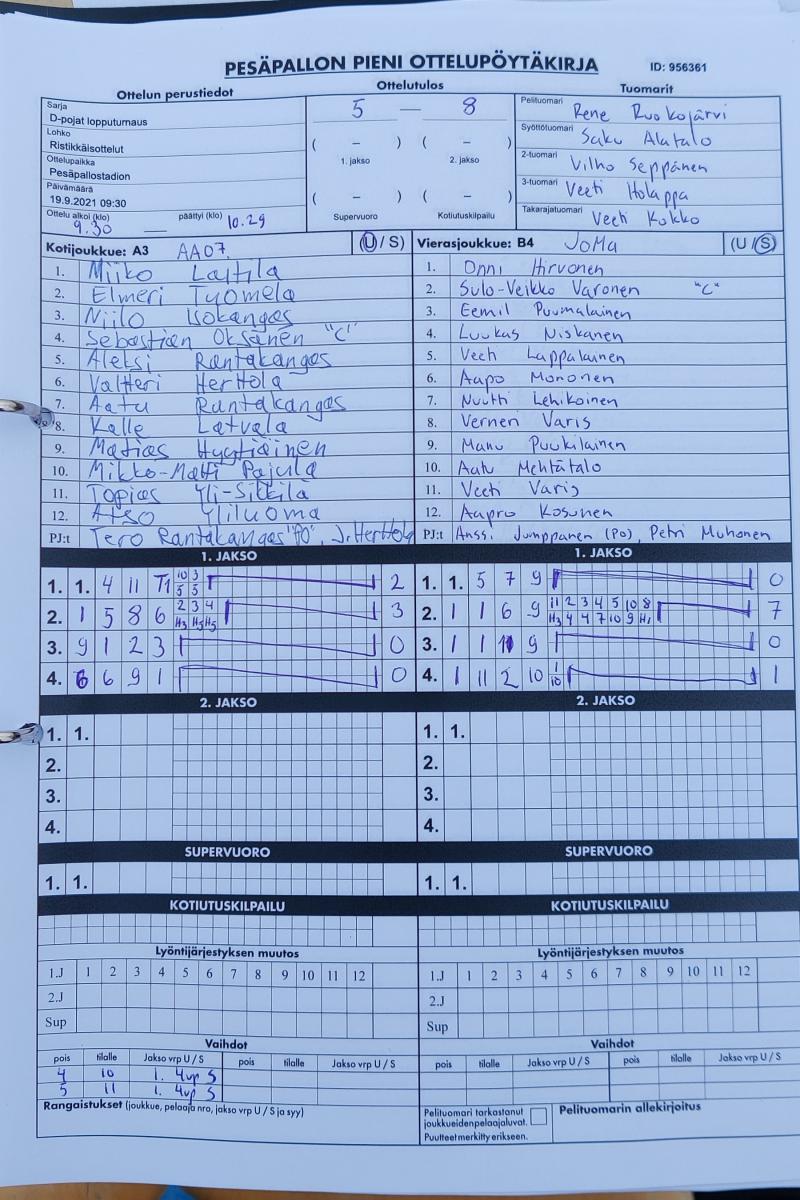 PESÄPALLON PIENI OTTELUPÖYTÄKIRJA
ID: 956361
Ottelun perustiedot
Ottelutulos
Tuomarit
Sarja
D-pojat lopputurnaus
Lohko
Ristikkäisottelut
Ottelupaikka
Pesäpallostadion
Päivämäärä
19.9.2021 09:30
Ottelu alkoi (klo) 9.30 päättyi (klo) 10.29
5 — 8
( – ) ( – )
1. jakso 2. jakso
( – ) ( – )
Supervuoro Kotiutuskilpailu
Pelituomari Rene Ruokojärvi
Syöttötuomari Saku Alatalo
2-tuomari Vilho Seppänen
3-tuomari Veeti Holappa
Takarajatuomari Veeti Kokko
Kotijoukkue: A3 AA07 (U / S)
1. Miiko Laitila
2. Elmeri Tuomela
3. Niilo Isokangas
4. Sebastian Oksanen "C"
5. Aleksi Rantakangas
6. Valtteri Herttola
7. Aatu Rantakangas
8. Kalle Latvala
9. Matias Hyytiäinen
10. Mikko-Matti Pajula
11. Topias Yli-Sikkilä
12. Atso Yliluoma
PJ:t Tero Rantakangas "PO", J. Herttola
Vierasjoukkue: B4 JoMa (U / S)
1. Onni Hirvonen
2. Sulo-Veikko Varonen "C"
3. Eemil Puumalainen
4. Luukas Niskanen
5. Veeti Lappalainen
6. Aapo Mononen
7. Nuutti Lehikoinen
8. Verneri Varis
9. Manu Puukilainen
10. Aatu Mehtätalo
11. Veeti Varis
12. Aapro Kosunen
PJ:t Anssi Jumppanen (PO), Petri Muhonen
1. JAKSO
1. 1. 4 11 T1 10 3 2
5 5
2. 1 5 8 6 2 3 4 3
H3 H5 H5
3. 9 1 2 3 0
4. 6 6 9 1 0
1. JAKSO
1. 1. 5 7 9 0
2. 1 1 6 9 11 2 3 4 5 10 8 7
H3 4 4 7 10 9 H1
3. 1 1 9 0
4. 1 11 2 10 1 1
10
2. JAKSO
1. 1.
2.
3.
4.
2. JAKSO
1. 1.
2.
3.
4.
SUPERVUORO
1. 1.
SUPERVUORO
1. 1.
KOTIUTUSKILPAILU
KOTIUTUSKILPAILU
Lyöntijärjestyksen muutos
1.J 1 2 3 4 5 6 7 8 9 10 11 12
2.J
Sup
Lyöntijärjestyksen muutos
1.J 1 2 3 4 5 6 7 8 9 10 11 12
2.J
Sup
Vaihdot
pois tilalle Jakso vrp U / S pois tilalle Jakso vrp U / S
4 10 1. 4vp S
5 11 1. 4vp S
Vaihdot
pois tilalle Jakso vrp U / S pois tilalle Jakso vrp U / S
Rangaistukset (joukkue, pelaaja nro, jakso vrp U / S ja syy)
Pelituomari tarkastanut
joukkueidenpelaajaluvat.
Puutteet merkitty erikseen.
Pelituomarin allekirjoitus